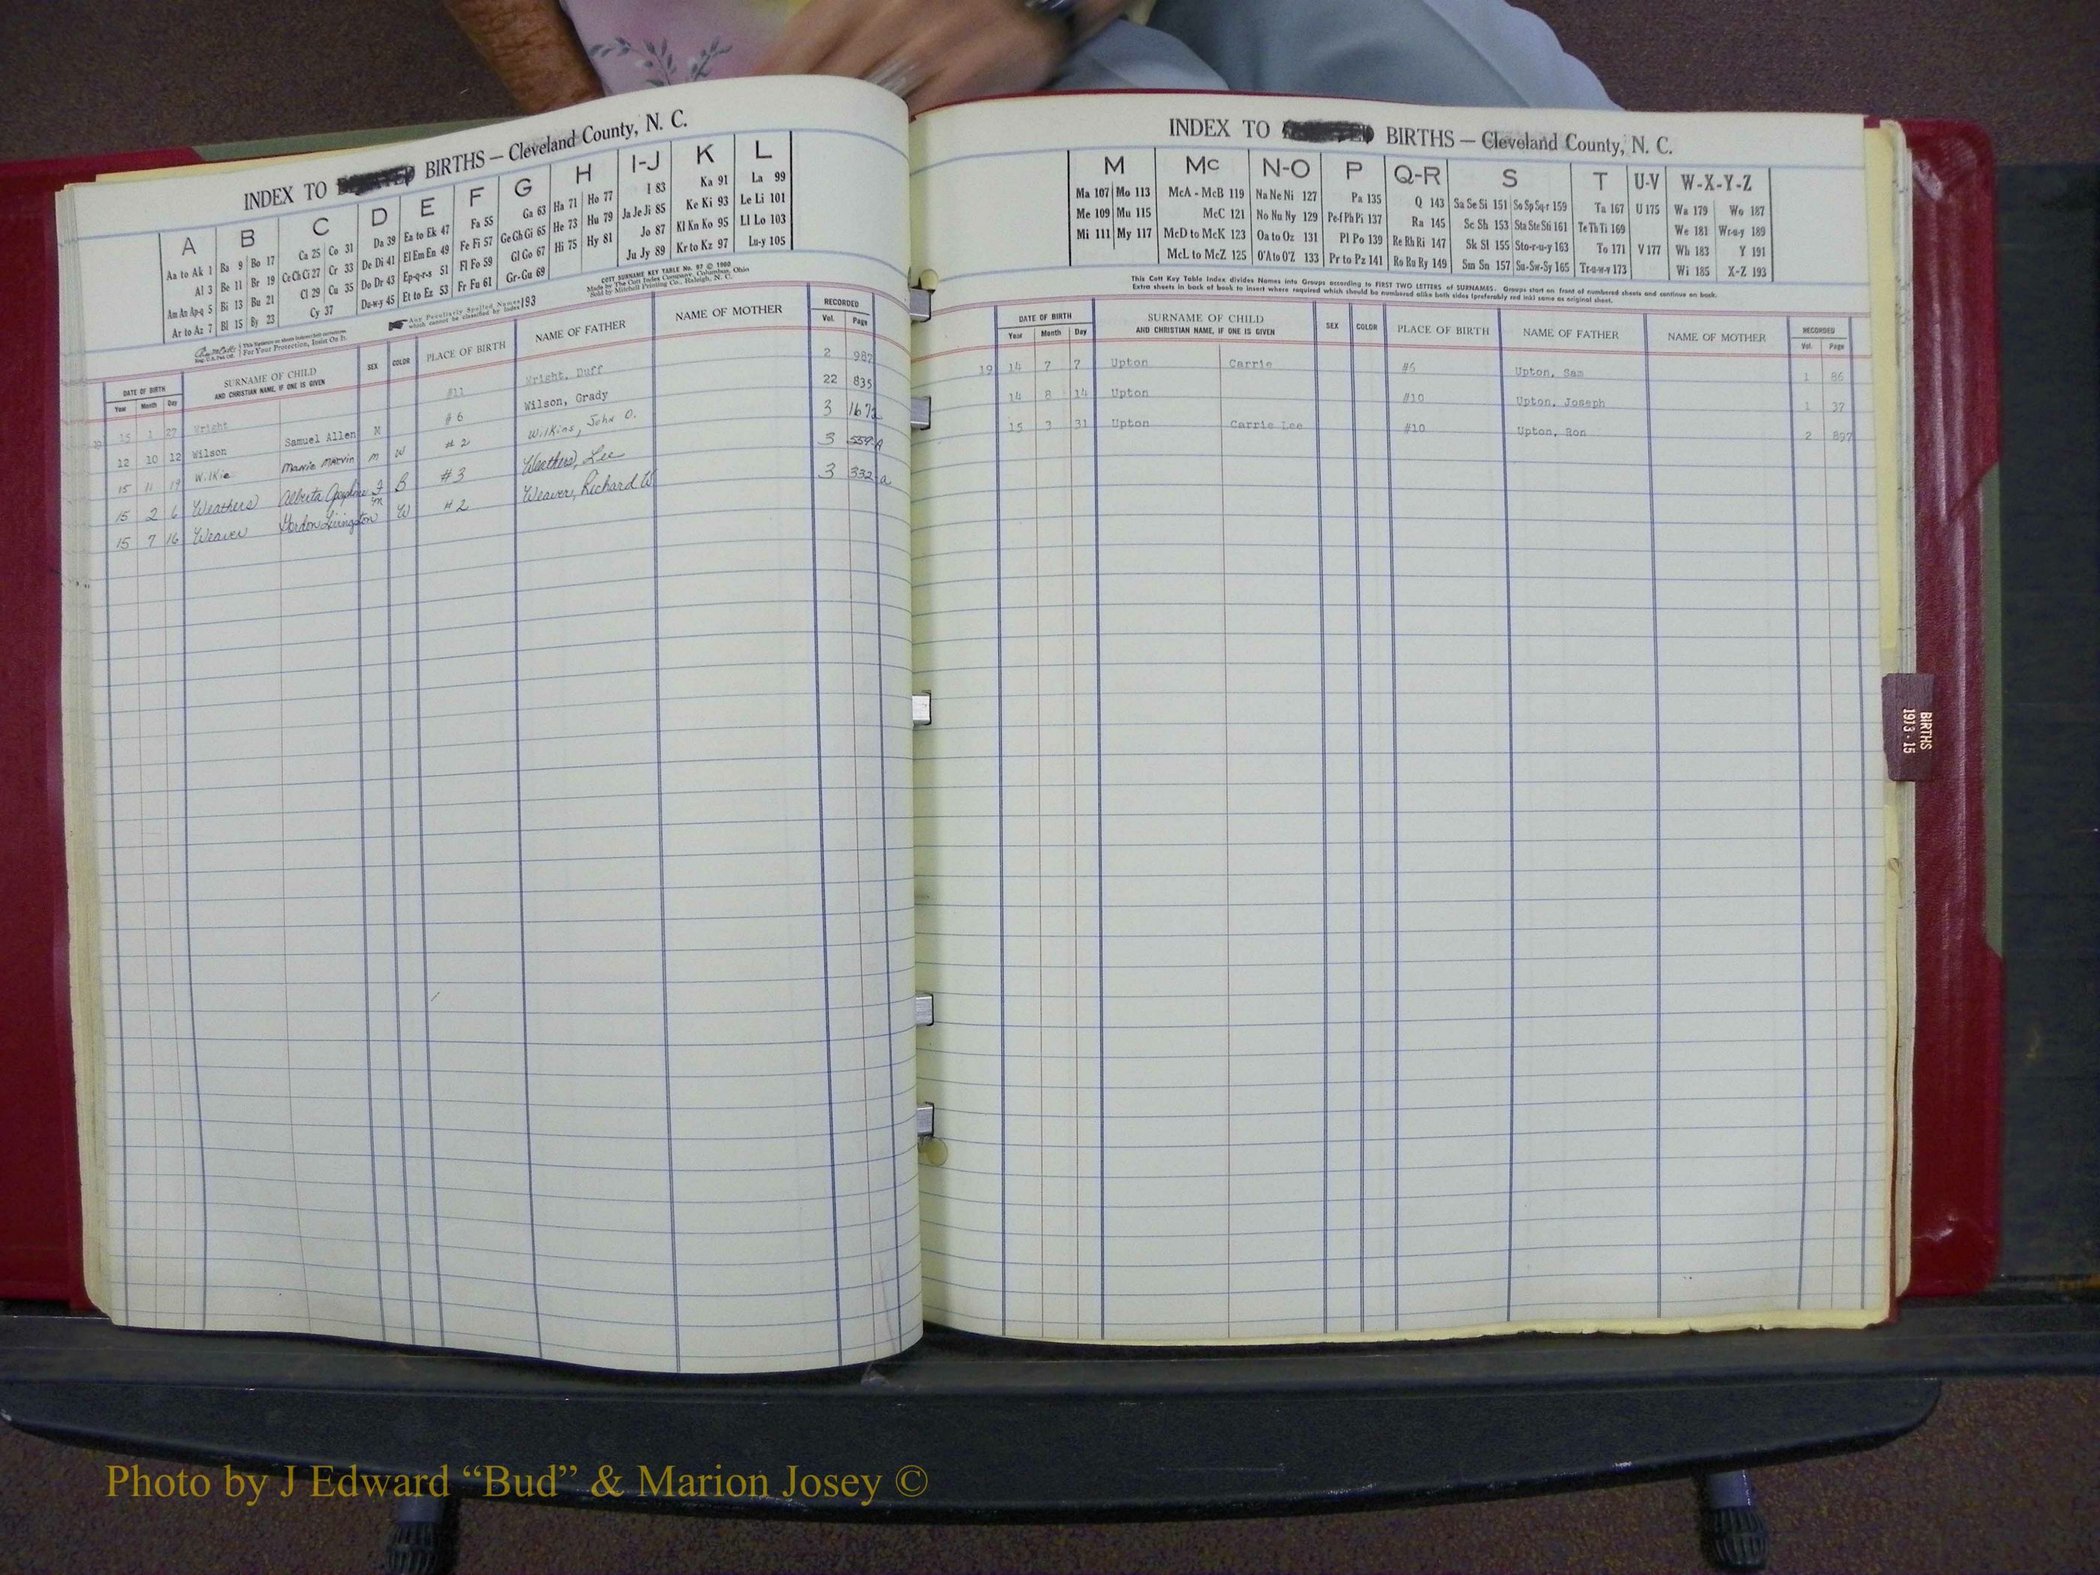 INDEX TO BIRTHS — Cleveland County, N. C.
A B C D E F G H I-J K L
Aa to Ak 1 Ba 9 Bo 17 Ca 25 Co 31 Da 39 Ea to Ek 47 Fa 55 Ga 63 Ha 71 Ho 77 I 83 Ka 91 La 99
Al 3 Be 11 Br 19 Ce Ch Ci 27 Cr 33 De Di 41 El Em En 49 Fe Fi 57 Ge Gh Gi 65 He 73 Hu 79 Ja Je Ji 85 Ke Ki 93 Le Li 101
Am An Ap-q 5 Bi 13 Bu 21 Cl 29 Cu 35 Do Dr 43 Ep-q-r-s 51 Fl Fo 59 Gl Go 67 Hi 75 Hy 81 Jo 87 Kl Kn Ko 95 Ll Lo 103
Ar to Az 7 Bl 15 By 23 Cy 37 Du-w-y 45 Et to Ez 53 Fr Fu 61 Gr-Gu 69 Ju Jy 89 Kr to Kz 97 Lu-y 105
Any Peculiarly Spelled Names which cannot be classified by Index 193
COTT SURNAME KEY TABLE No. 97 © 1900
Made by The Cott Index Company, Columbus, Ohio
Sold by Mitchell Printing Co., Raleigh, N. C.
For Your Protection, Insist On It.
DATE OF BIRTH SURNAME OF CHILD SEX COLOR PLACE OF BIRTH NAME OF FATHER NAME OF MOTHER RECORDED
Year Month Day AND CHRISTIAN NAME, IF ONE IS GIVEN Vol. Page
19 15 1 27 Wright #11 Wright, Duff 2 987
12 10 12 Wilson Samuel Allen M #6 Wilson, Grady 22 835
15 11 19 Wilkie Marvin m W #2 Wilkins, John O. 3 1672
15 2 6 Weathers Alberta F B #3 Weathers, Lee 3 559-A
15 7 16 Weaver Gordon Livingston m W #2 Weaver, Richard W 3 332-a
INDEX TO BIRTHS — Cleveland County, N. C.
M Mc N-O P Q-R S T U-V W-X-Y-Z
Ma 107 Mo 113 McA - McB 119 Na Ne Ni 127 Pa 135 Q 143 Sa Se Si 151 So Sp Sq-r 159 Ta 167 U 175 Wa 179 Wo 187
Me 109 Mu 115 McC 121 No Nu Ny 129 Pe-f Ph Pi 137 Ra 145 Sc Sh 153 Sta Ste Sti 161 Te Th Ti 169 We 181 Wr-u-y 189
Mi 111 My 117 McD to McK 123 Oa to Oz 131 Pl Po 139 Re Rh Ri 147 Sk Sl 155 Sto-r-u-y 163 To 171 V 177 Wh 183 Y 191
McL to McZ 125 O'A to O'Z 133 Pr to Pz 141 Ro Ru Ry 149 Sm Sn 157 Su-Sw-Sy 165 Tr-u-w-y 173 Wi 185 X-Z 193
This Cott Key Table Index divides Names into Groups according to FIRST TWO LETTERS of SURNAMES. Groups start on front of numbered sheets and continue on back.
Extra sheets in back of book to insert where required which should be numbered alike both sides (preferably red ink) same as original sheet.
DATE OF BIRTH SURNAME OF CHILD SEX COLOR PLACE OF BIRTH NAME OF FATHER NAME OF MOTHER RECORDED
Year Month Day AND CHRISTIAN NAME, IF ONE IS GIVEN Vol. Page
19 14 7 7 Upton Carrie #6 Upton, Sam 1 86
14 8 14 Upton #10 Upton, Joseph 1 37
15 3 31 Upton Carrie Lee #10 Upton, Ron 2 897
BIRTHS
1913-15
Photo by J Edward “Bud” & Marion Josey ©